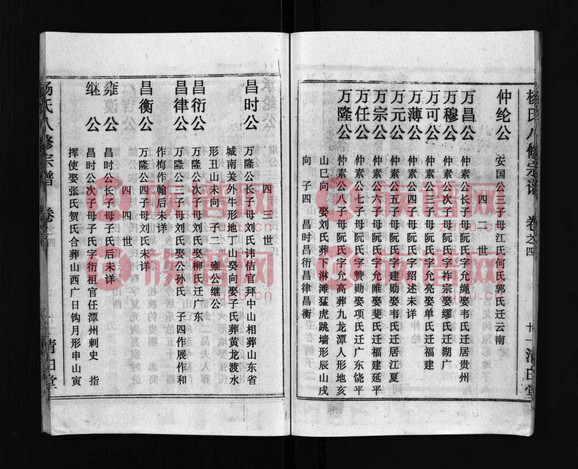 杨氏八修宗谱 卷之四 十一 清白堂
仲纶公 安国公三子母江氏何氏郭氏迁云南
四二世
万昌公 仲素公长子母阮氏字允绳娶韦氏迁居贵州
万穆公 仲素公次子母阮氏字祥宗娶缪氏迁湖广
万可公 仲素公三子母阮氏字允亮娶单氏迁福建
万薄公 仲素公四子母阮氏字绍述未详
万元公 仲素公五子母阮氏字建勋娶韦氏迁居江夏
万宗公 仲素公六子母阮氏字赞勋娶项氏迁福建延平
万任公 仲素公七子母阮氏字 娶 氏迁广东饶平
万隆公 仲素公八子母阮氏字允高葬九龙潭人形地亥
山巳向娶刘氏葬下淋滩猛虎跳墙形辰山戌
向 子四 昌时昌衍昌律昌衡
四三世
昌时公 万隆公长子母刘氏讳估官拜中山相葬山东省
城南关外牛形地丁山癸向娶子氏葬黄龙渡水
形丑山未向 子二 雍公继公
昌衍公 万隆公次子母刘氏娶柳氏迁广东
昌律公 万隆公三子母刘氏娶公孙氏 子四作展作和
作梅作翰后未详
昌衡公 万隆公四子母刘氏未详
四四世
雍公 昌时公长子母子氏后未详
继公 昌时公次子母子氏字衍祖官任潭州刺史 指
挥使娶张氏贺氏合葬山西广日钩月形申山寅
杨氏八修宗谱 卷之 清白堂